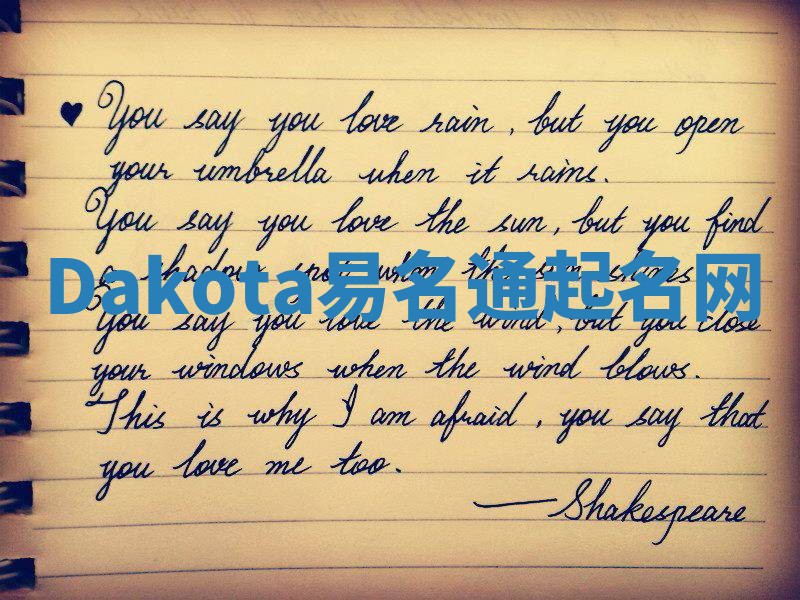 ♥ You say you love rain, but you open
your umbrella when it rains.
You say you love the sun, but you find
a shadow spot when the sun shines
Dakota易名通起名网
You say you love the wind, but you close
your windows when the wind blows.
This is why I am afraid, you say that
you love me too.
—Shakespeare